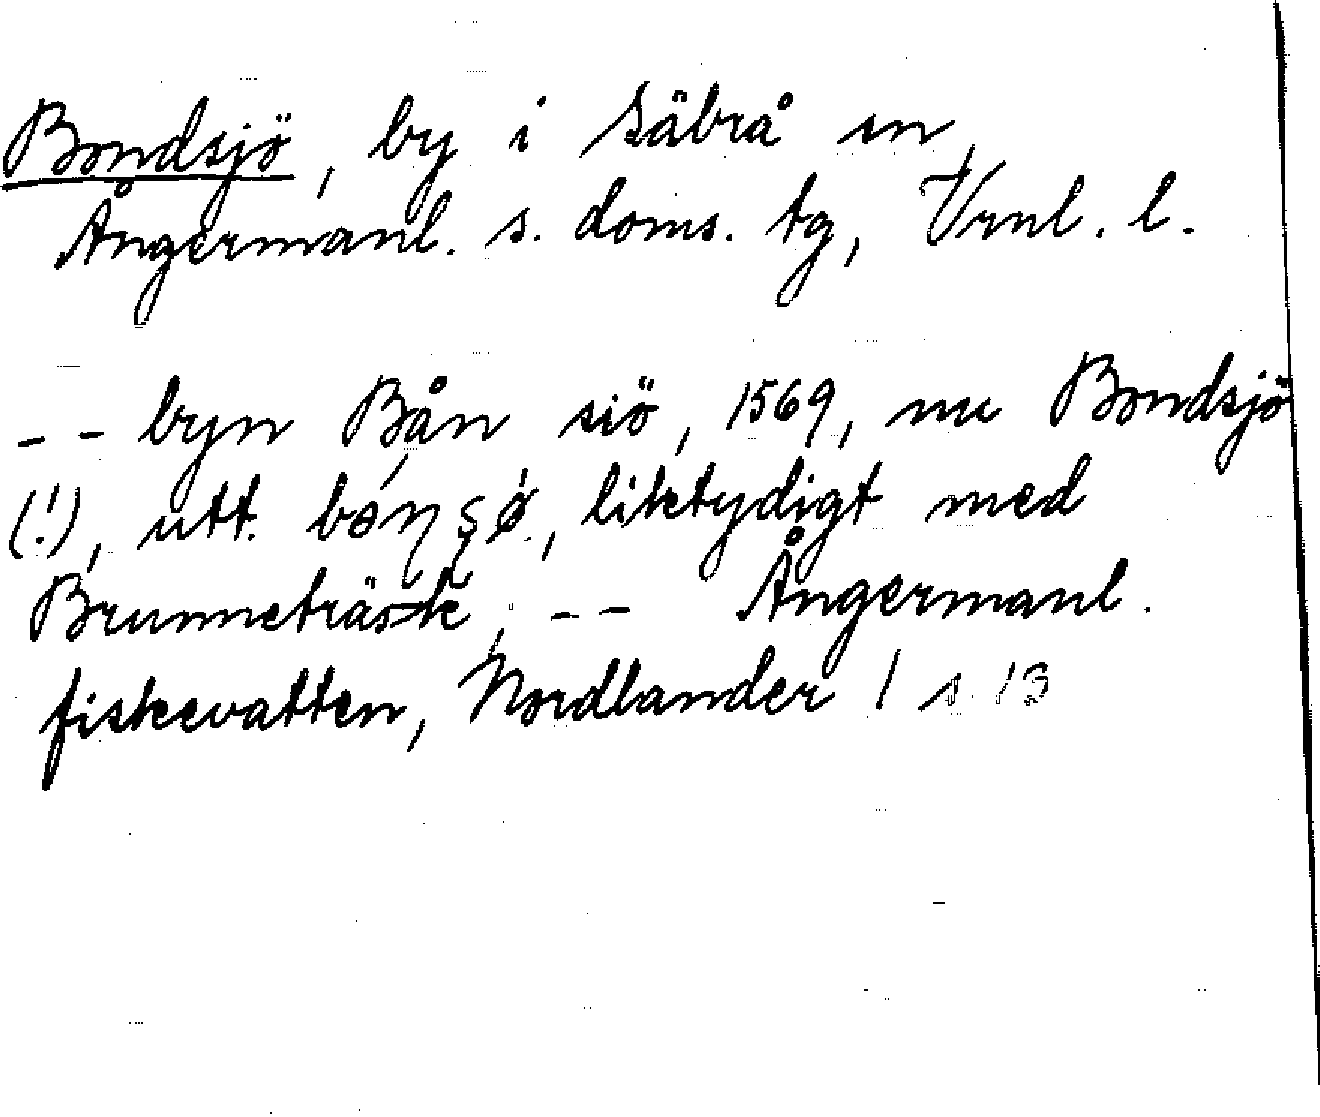 Bondsjö, by i Säbrå sn,
Ångermanl. s. doms. tg, Vrnl. l.
- - byn Bån siö, 1569, nu Bondsjö
(!), utt. liktydigt med
Brunneträsk, - - Ångermanl.
fiskevatten, Nordlander 1 s. 13